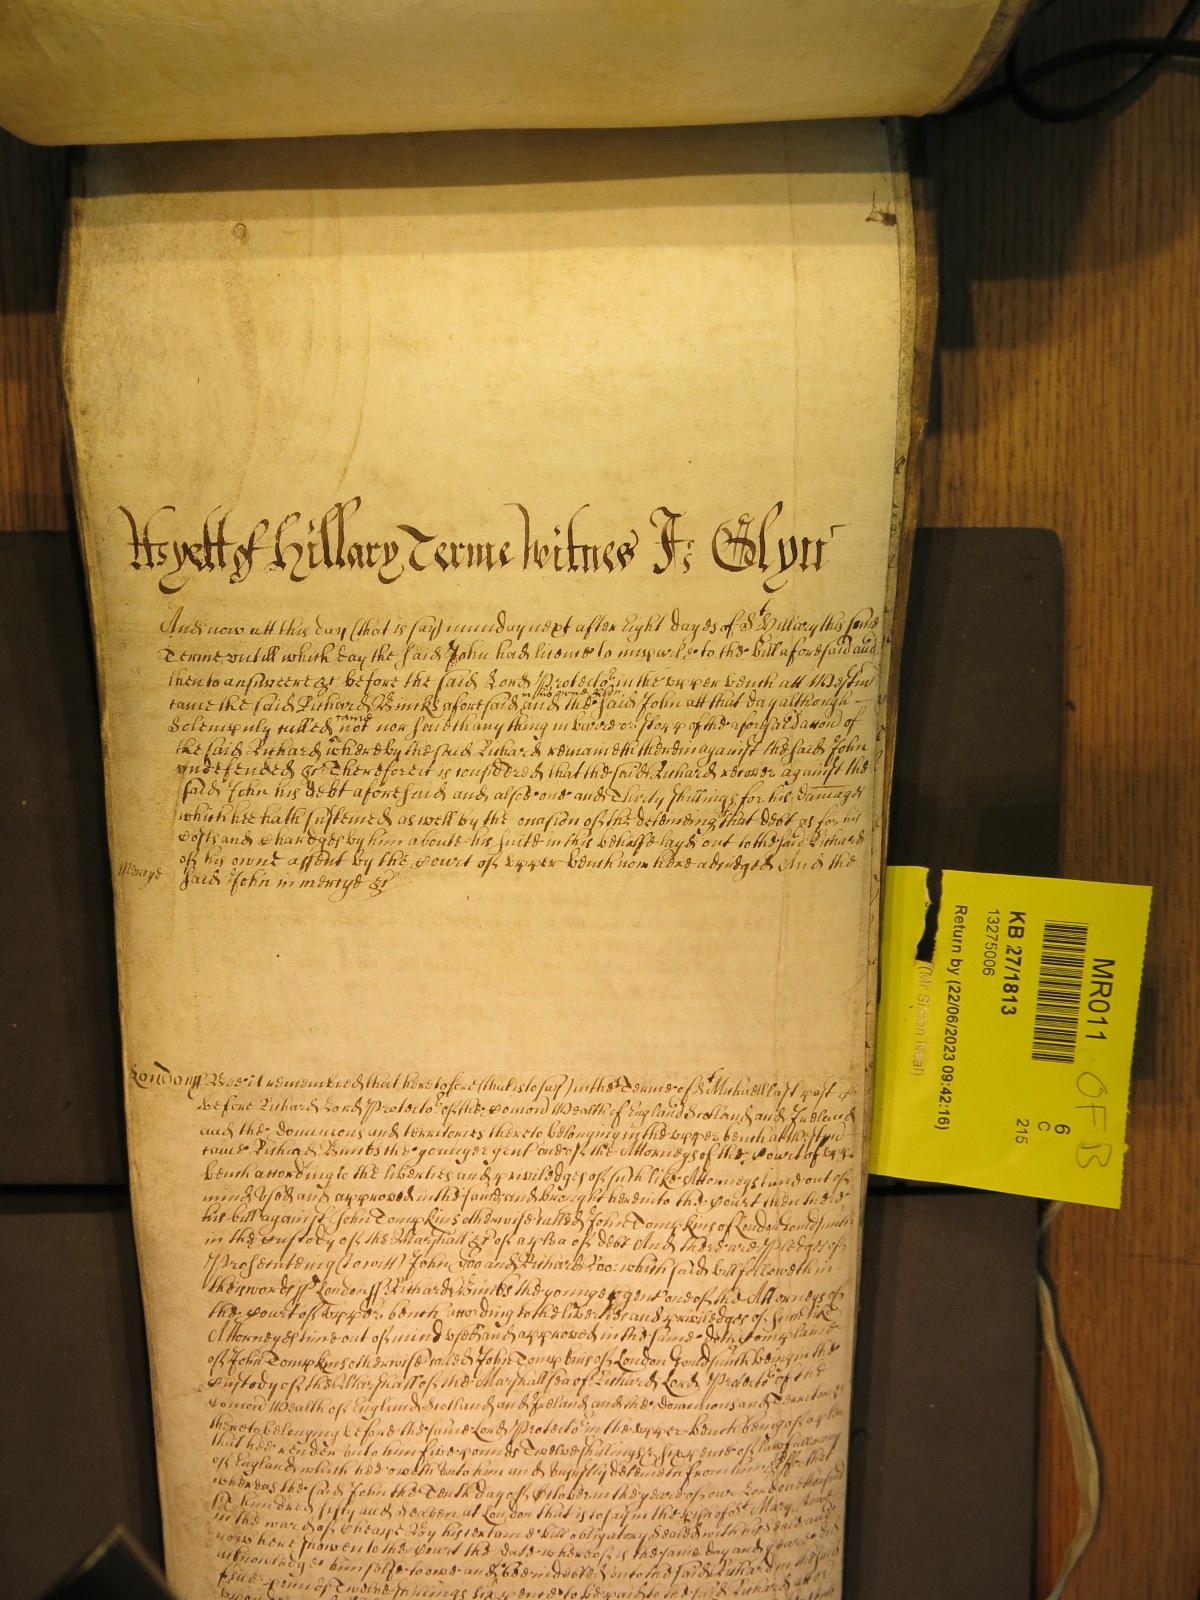 As yett of Hillary Terme Witnes Jo: Glynn
And now att this day (that is to say) munday next after Eight dayes of St Hillary this same
Terme untill which day the said John had licence to imparle to the bill aforesaid and
then to answeere &c before the said Lord Protector in the upper bench att Westm
came the said Richard Bimks aforesaid and the said John att that day although
in his owne pson
Solempnly called not nor some thing in barre or stopp of the aforesaid accon of
came
the said Richard whereby the said Richard remaineth therein against the said John
undefended &c Therefore it is considered that the said Richard recover against the
said John his debt aforesaid and alsoe one and Thirty shillings for his damages
which hee hath susteined as well by the occasion of the deteining that debt as for his
costs and chardges by him aboute his suite in this behalfe layd out to the said Richard
of his owne assent by the Court of upper bench now here adiudged And the
Mercye
said John in mercye &c
London ss Bee it remembred that heretofore (that is to say) in the Terme of St Michaell last past
before Richard Lord Protector of the Comon Wealth of England Scotland and Ireland
and the dominions and territories thereto belonging in the upper bench att Westm
came Richard the younger gent one of the Attorneys of the Court of upp
bench according to the liberties and priviledges of such like Attorneys time out of
mind used and approved in the same and brought here into the Court then there
his bill against John Tompkins otherwise called John Tompkins of London Gouldsmith
in the custody of the Marshall &c of a plea of debt And there are Pledges of
Prosecuteing (to witt) John Doo and Richard Roo which said bill followeth in
these words ss London ss Richard the younger gent one of the Attorneys of
the Court of upper bench according to the liberties and priviledges of such like
Attorneyes time out of mind used and approved in the same doth complaine
of John Tompkins otherwise called John Tompkins of London Gouldsmith being in the
custody of the Marshall of the Marshallsea of Richard Lord Protector of the
Comon Wealth of England Scotland and Ireland and the dominions and Territories
thereto belonging before the same Lord Protector in the upper bench being of a plea
that hee render unto him five pounds Twelve shillings & six pence of lawfull mony
of England which hee oweth unto him and uniustly deteineth from him &c for that
whereas the said John the Tenth day of October in the yeare of our Lord one thousand
six hundred fifty and seaven at London that is to say in the pish of St Mary
in the ward of Cheape by his certaine bill obligatory sealed with his seale and
now here showen to the Court the date whereof is the same day and yeare did
acknowledge himselfe to owe and bee indebted unto the said Richard in the said
five pounds Twelve shillings six pence to be paid to the said Richard att or
MR011
6
C
215
KB 27/1813
13275006
Return by (22/06/2023 09:42:16)
(Mr Simon Neal)
OFB